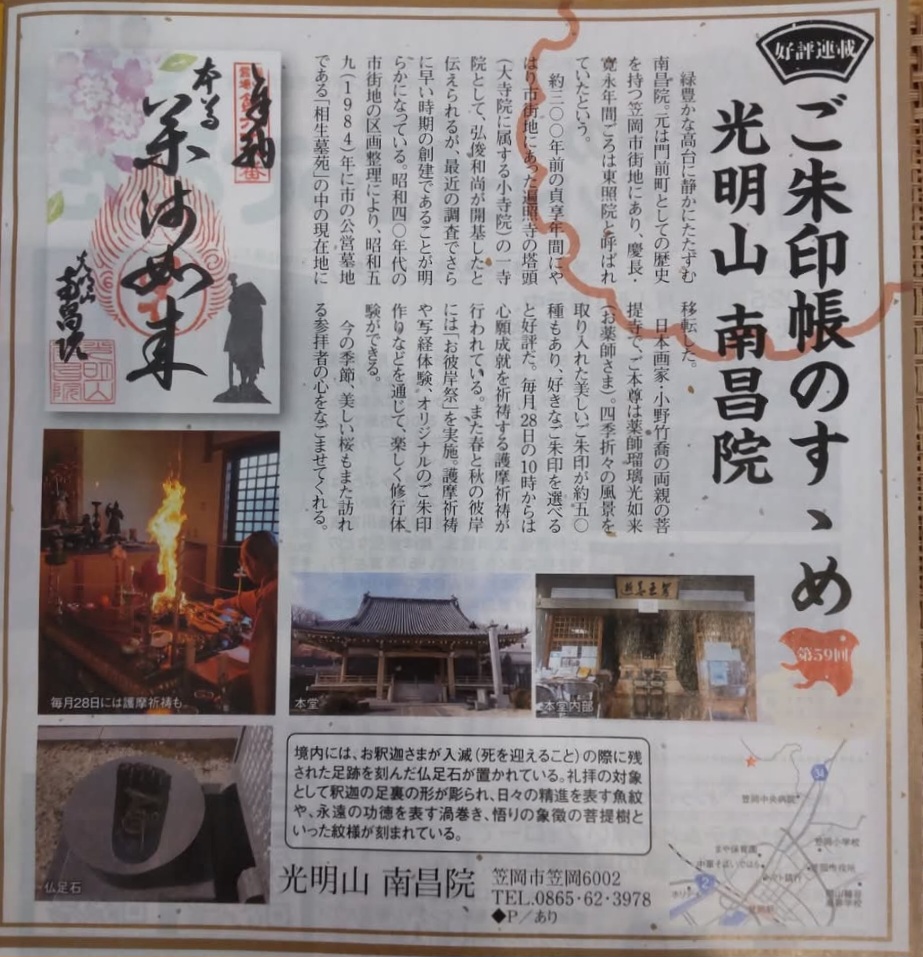 好評連載
ご朱印帳のすゝめ
第59回
光明山 南昌院
緑豊かな高台に静かにたたずむ
南昌院。元は門前町としての歴史
を持つ笠岡市街地にあり、慶長・
寛永年間ごろは東照院と呼ばれ
ていたという。
約三〇〇年前の貞享年間にや
はり市街地にあった遍照寺の塔頭
(大寺院に属する小寺院)の一寺
院として、弘俊和尚が開基したと
伝えられるが、最近の調査でさら
に早い時期の創建であることが明
らかになっている。昭和四〇年代の
市街地の区画整理により、昭和五
九(1984)年に市の公営墓地
である「相生墓苑」の中の現在地に
移転した。
日本画家・小野竹喬の両親の菩
提寺で、ご本尊は薬師瑠璃光如来
(お薬師さま)。四季折々の風景を
取り入れた美しいご朱印が約五〇
種もあり、好きなご朱印を選べる
と好評だ。毎月28日の10時からは
心願成就を祈祷する護摩祈祷が
行われている。また春と秋の彼岸
には「お彼岸祭」を実施。護摩祈祷
や写経体験、オリジナルのご朱印
作りなどを通じて、楽しく修行体
験ができる。
今の季節、美しい桜もまた訪れ
る参拝者の心をなごませてくれる。
本尊
薬師如来
光明山
南昌院
毎月28日には護摩祈祷も
本堂
本堂内部
仏足石
境内には、お釈迦さまが入滅(死を迎えること)の際に残
された足跡を刻んだ仏足石が置かれている。礼拝の対象
として釈迦の足裏の形が彫られ、日々の精進を表す魚紋
や、永遠の功徳を表す渦巻き、悟りの象徴の菩提樹と
いった紋様が刻まれている。
光明山 南昌院
笠岡市笠岡6002
TEL.0865・62・3978
◆P/あり
34
笠岡中央病院
笠岡小学校
2